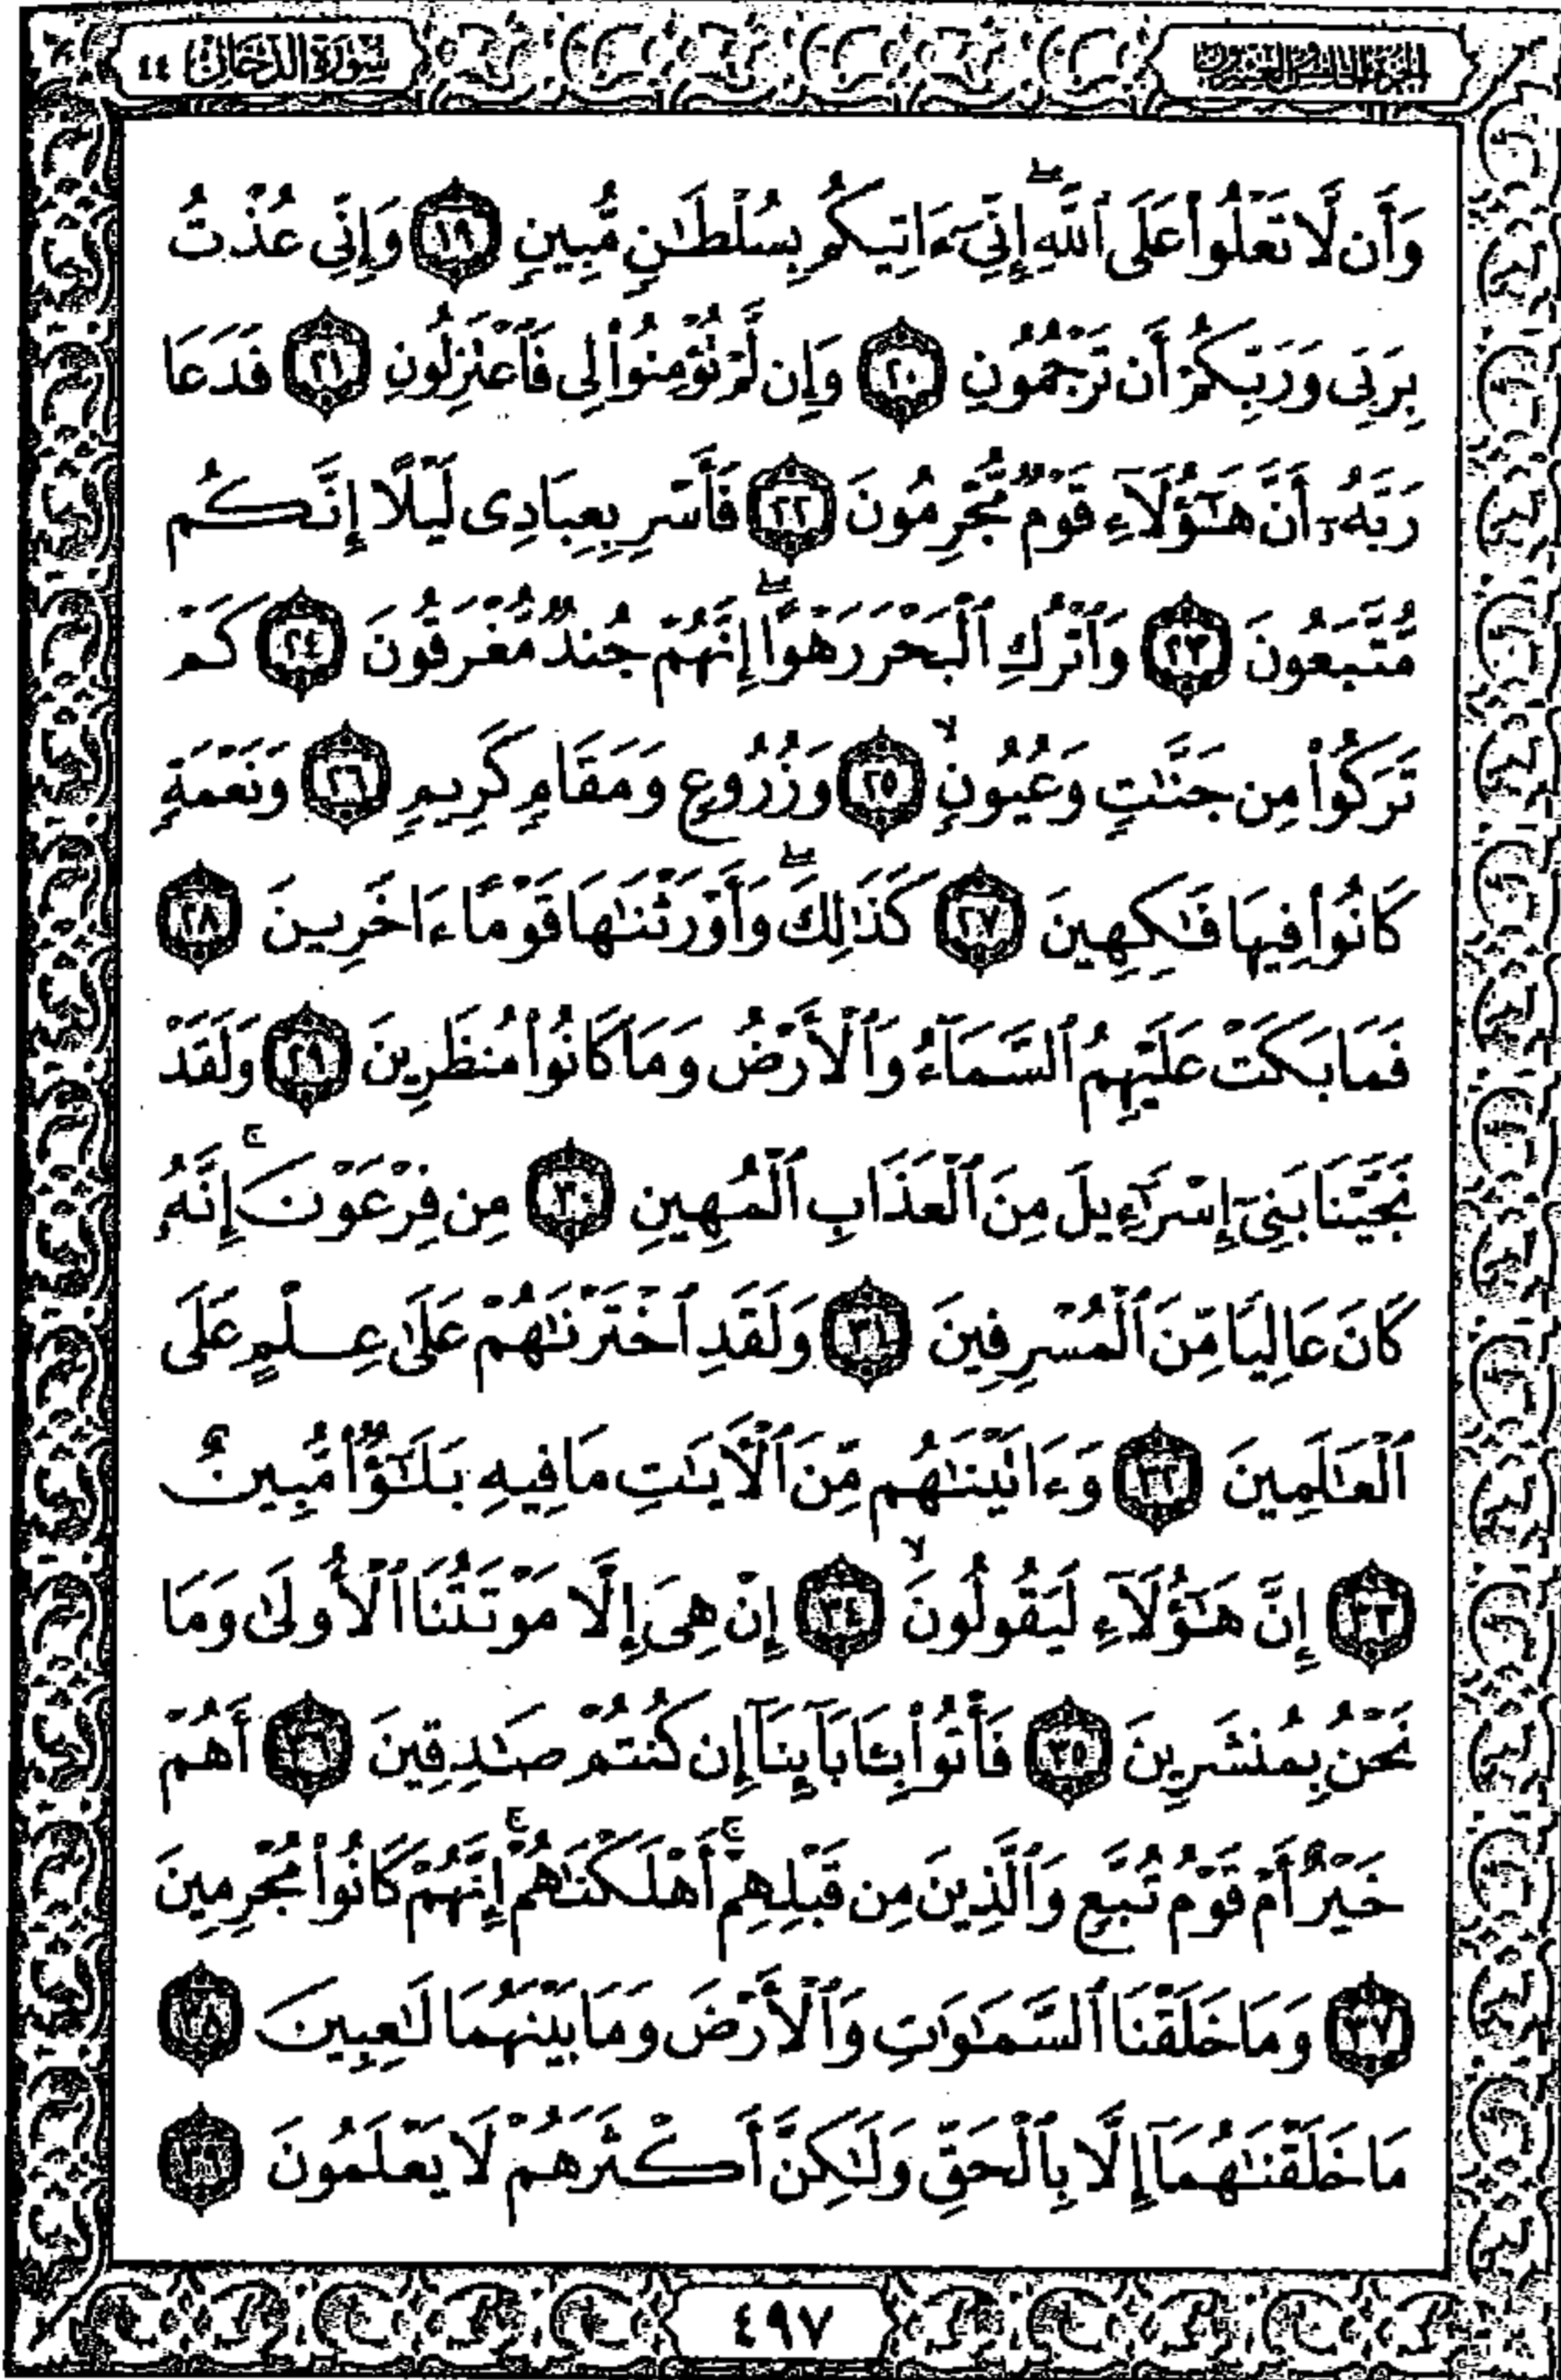 الجزء الخامس والعشرون
سورة الدخان ٤٤
وَأَن لَّا تَعْلُوا۟ عَلَى ٱللَّهِ ۖ إِنِّىٓ ءَاتِيكُم بِسُلْطَـٰنٍ مُّبِينٍ ١٩ وَإِنِّى عُذْتُ
بِرَبِّى وَرَبِّكُمْ أَن تَرْجُمُونِ ٢٠ وَإِن لَّمْ تُؤْمِنُوا۟ لِى فَٱعْتَزِلُونِ ٢١ فَدَعَا
رَبَّهُۥٓ أَنَّ هَـٰٓؤُلَآءِ قَوْمٌ مُّجْرِمُونَ ٢٢ فَأَسْرِ بِعِبَادِى لَيْلًا إِنَّكُم
مُّتَّبَعُونَ ٢٣ وَٱتْرُكِ ٱلْبَحْرَ رَهْوًا ۖ إِنَّهُمْ جُندٌ مُّغْرَقُونَ ٢٤ كَمْ
تَرَكُوا۟ مِن جَنَّـٰتٍ وَعُيُونٍ ۙ ٢٥ وَزُرُوعٍ وَمَقَامٍ كَرِيمٍ ٢٦ وَنَعْمَةٍ
كَانُوا۟ فِيهَا فَـٰكِهِينَ ٢٧ كَذَٰلِكَ ۖ وَأَوْرَثْنَـٰهَا قَوْمًا ءَاخَرِينَ ٢٨
فَمَا بَكَتْ عَلَيْهِمُ ٱلسَّمَآءُ وَٱلْأَرْضُ وَمَا كَانُوا۟ مُنظَرِينَ ٢٩ وَلَقَدْ
نَجَّيْنَا بَنِىٓ إِسْرَٰٓءِيلَ مِنَ ٱلْعَذَابِ ٱلْمُهِينِ ٣٠ مِن فِرْعَوْنَ ۚ إِنَّهُۥ
كَانَ عَالِيًا مِّنَ ٱلْمُسْرِفِينَ ٣١ وَلَقَدِ ٱخْتَرْنَـٰهُمْ عَلَىٰ عِلْمٍ عَلَى
ٱلْعَـٰلَمِينَ ٣٢ وَءَاتَيْنَـٰهُم مِّنَ ٱلْـَٔايَـٰتِ مَا فِيهِ بَلَـٰٓؤٌا۟ مُّبِينٌ
٣٣ إِنَّ هَـٰٓؤُلَآءِ لَيَقُولُونَ ۙ ٣٤ إِنْ هِىَ إِلَّا مَوْتَتُنَا ٱلْأُولَىٰ وَمَا
نَحْنُ بِمُنشَرِينَ ٣٥ فَأْتُوا۟ بِـَٔابَآئِنَآ إِن كُنتُمْ صَـٰدِقِينَ ٣٦ أَهُمْ
خَيْرٌ أَمْ قَوْمُ تُبَّعٍ وَٱلَّذِينَ مِن قَبْلِهِمْ ۚ أَهْلَكْنَـٰهُمْ ۚ إِنَّهُمْ كَانُوا۟ مُجْرِمِينَ
٣٧ وَمَا خَلَقْنَا ٱلسَّمَـٰوَٰتِ وَٱلْأَرْضَ وَمَا بَيْنَهُمَا لَـٰعِبِينَ ٣٨
مَا خَلَقْنَـٰهُمَآ إِلَّا بِٱلْحَقِّ وَلَـٰكِنَّ أَكْثَرَهُمْ لَا يَعْلَمُونَ ٣٩
٤٩٧